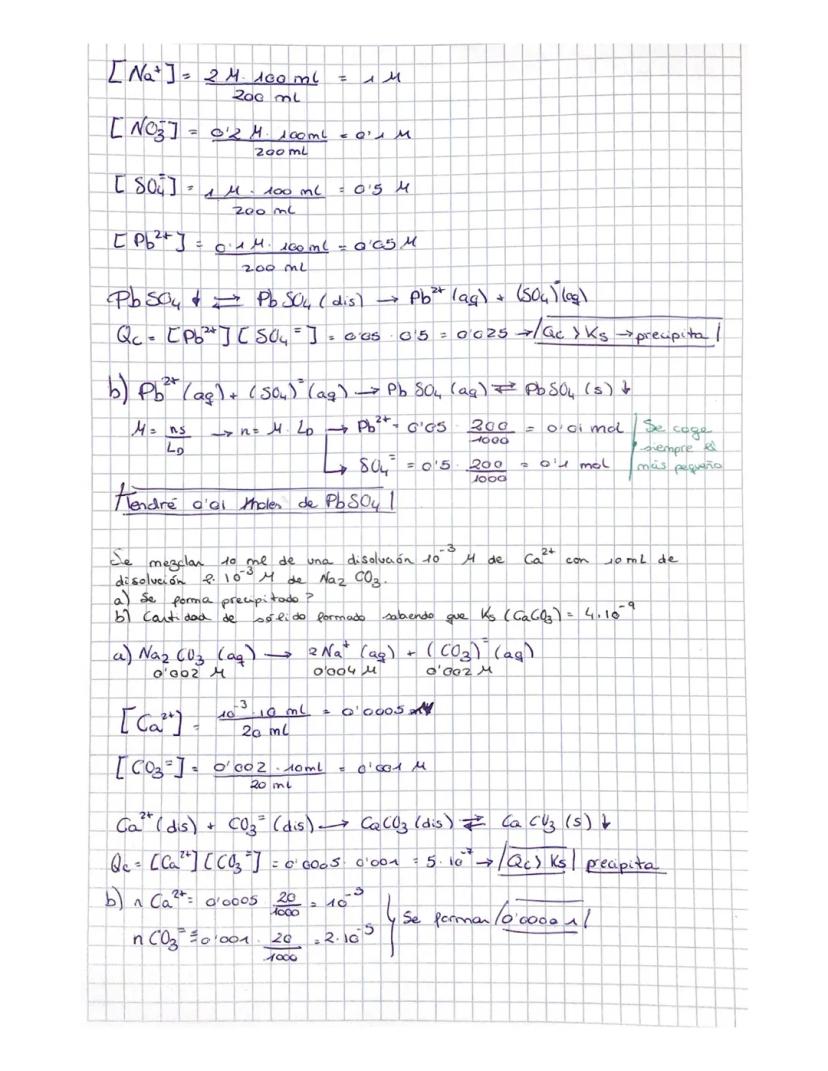 [Na⁺] = 2 M · 100 ml / 200 ml = 1 M
[NO₃⁻] = 0'2 M · 100 ml / 200 ml = 0'1 M
[SO₄⁼] = 1 M · 100 ml / 200 ml = 0'5 M
[Pb²⁺] = 0'1 M · 100 ml / 200 ml = 0'05 M
PbSO₄ ↓ ⇄ PbSO₄ (dis) → Pb²⁺ (aq) + (SO₄)⁼ (aq)
Qc = [Pb²⁺] [SO₄⁼] = 0'05 · 0'5 = 0'025 → Qc > Ks → precipita
b) Pb²⁺ (aq) + (SO₄)⁼ (aq) → PbSO₄ (aq) ⇄ PbSO₄ (s) ↓
M = ns / LD → n = M · LD → Pb²⁺ = 0'05 · 200/1000 = 0'01 mol
↳ SO₄⁼ = 0'5 · 200/1000 = 0'1 mol
Se coge
siempre el
más pequeño
Tendré 0'01 moles de PbSO₄
Se mezclan 10 ml de una disolución 10⁻³ M de Ca²⁺ con 10 mL de
disolución 2·10⁻³ M de Na₂CO₃.
a) Se forma precipitado?
b) Cantidad de sólido formado sabiendo que Ks (CaCO₃) = 4·10⁻⁹
a) Na₂CO₃ (aq) → 2Na⁺ (aq) + (CO₃)⁼ (aq)
0'002 M 0'004 M 0'002 M
[Ca²⁺] = 10⁻³ · 10 ml / 20 ml = 0'0005 M
[CO₃⁼] = 0'002 · 10ml / 20 ml = 0'001 M
Ca²⁺ (dis) + CO₃⁼ (dis) → CaCO₃ (dis) ⇄ CaCO₃ (s) ↓
Qc = [Ca²⁺] [CO₃⁼] = 0'0005 · 0'001 = 5·10⁻⁷ → Qc > Ks precipita
b) n Ca²⁺ = 0'0005 20/1000 = 10⁻⁵
n CO₃⁼ = 0'001 · 20/1000 = 2·10⁻⁵
Se forman 0'00001